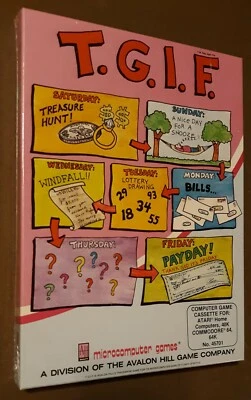 T.G.I.F.
SATURDAY:
TREASURE
HUNT!
SUNDAY:
A NICE DAY
FOR A
SNOOZE...
WEDNESDAY:
WINDFALL!!
TUESDAY:
LOTTERY
DRAWING
29 33
18 34 55
MONDAY
BILLS...
THURSDAY:
? ? ? ? ? ? ?
FRIDAY:
PAYDAY!
COMPUTER GAME
CASSETTE FOR:
ATARI® Home
Computers, 40K
COMMODORE® 64,
64K
No. 45701
microcomputer games
A DIVISION OF THE AVALON HILL GAME COMPANY